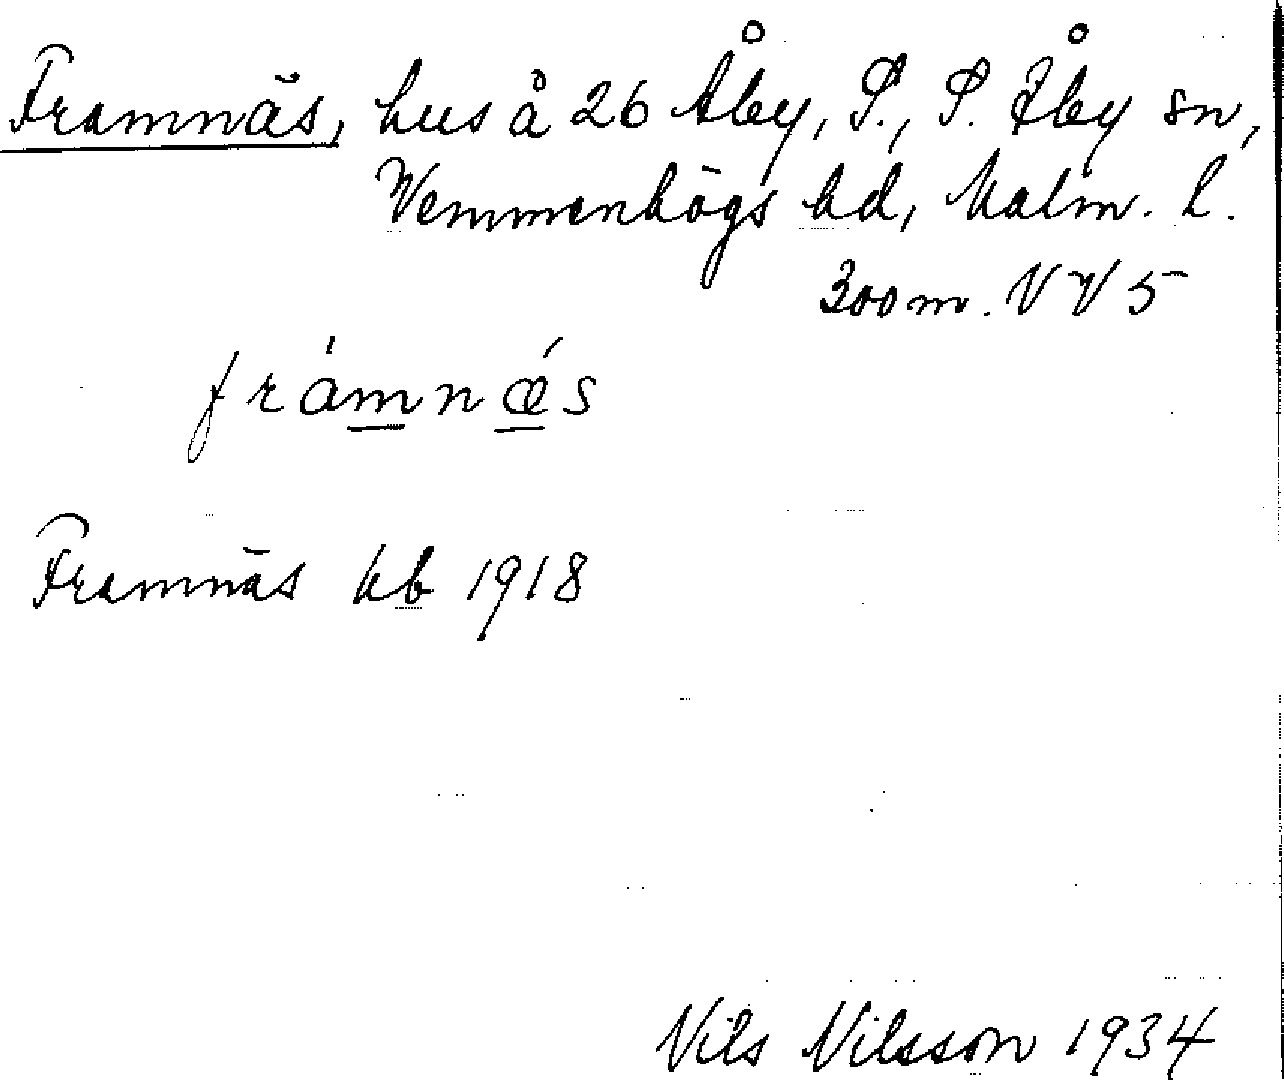 Framnäs, hus å 26 Åby, S., S. Åby sn,
Wemmenhögs hd, Malm. L.
300 m. V V 5
frámnǽs
Framnäs kb 1918
Nils Nilsson 1934